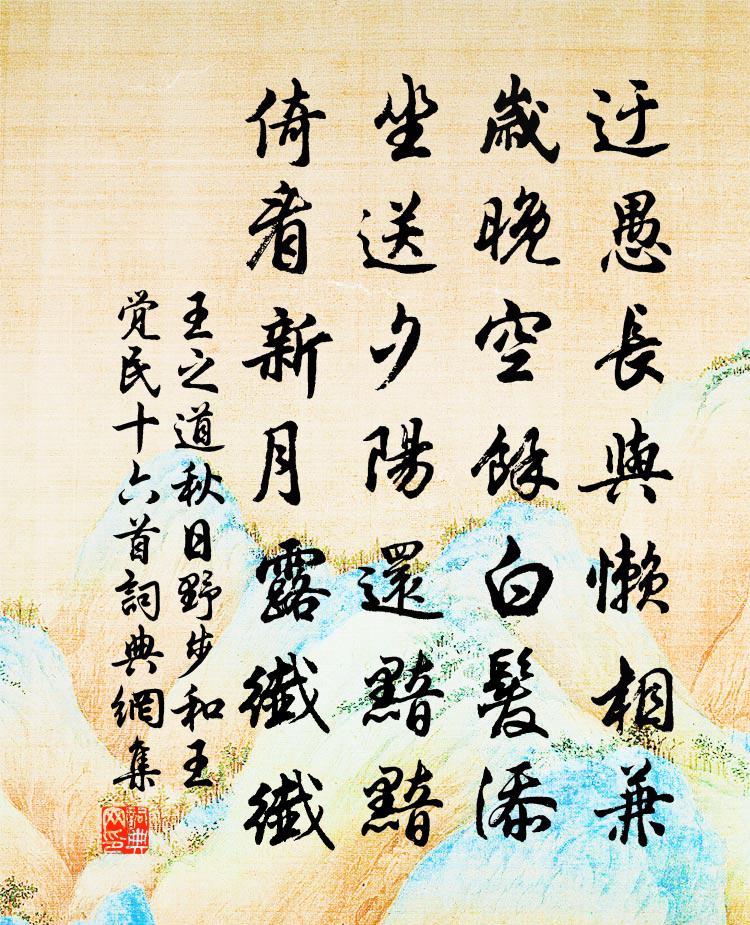 迂愚長與懶相兼
歲晚空餘白髮添
坐送夕陽還黯黯
倚看新月露纖纖
王之道秋日野步和王
覺民十六首詞典網集
詞典網印